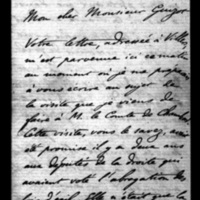 Mon cher Monsieur
Votre lettre, adressée à
m'est parvenue ici ce matin
au moment où je me prépare
à vous écrire au sujet de
la visite que je viens de
faire à M. le Comte de
Cette visite, vous le savez, avait
été promise il y a deux ans
aux députés de la droite qui
avaient voté l'abrogation des